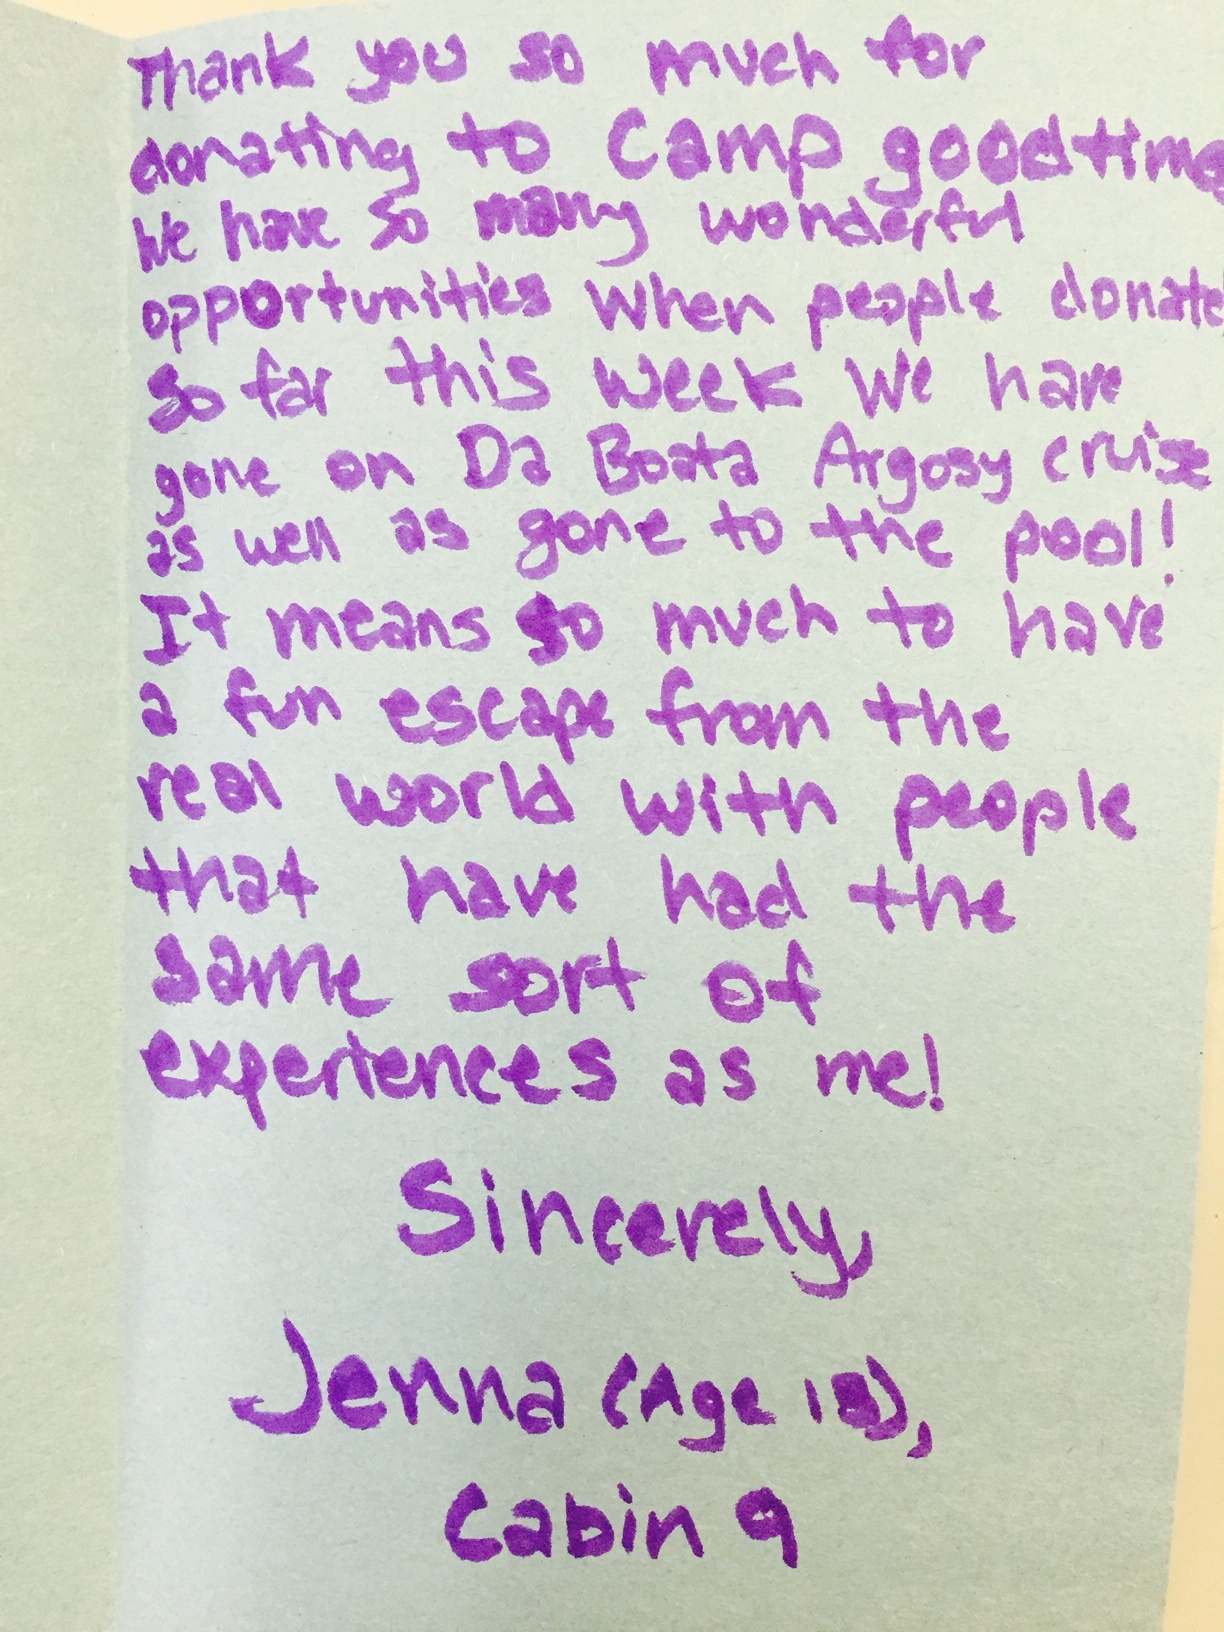 Thank you so much for
donating to Camp goodtime
We have so many wonderful
opportunities when people donate
so far this week we have
gone on Da Boata Argosy cruise
as well as gone to the pool!
It means so much to have
a fun escape from the
real world with people
that have had the
same sort of
experiences as me!
Sincerely,
Jenna (Age 18),
Cabin 9